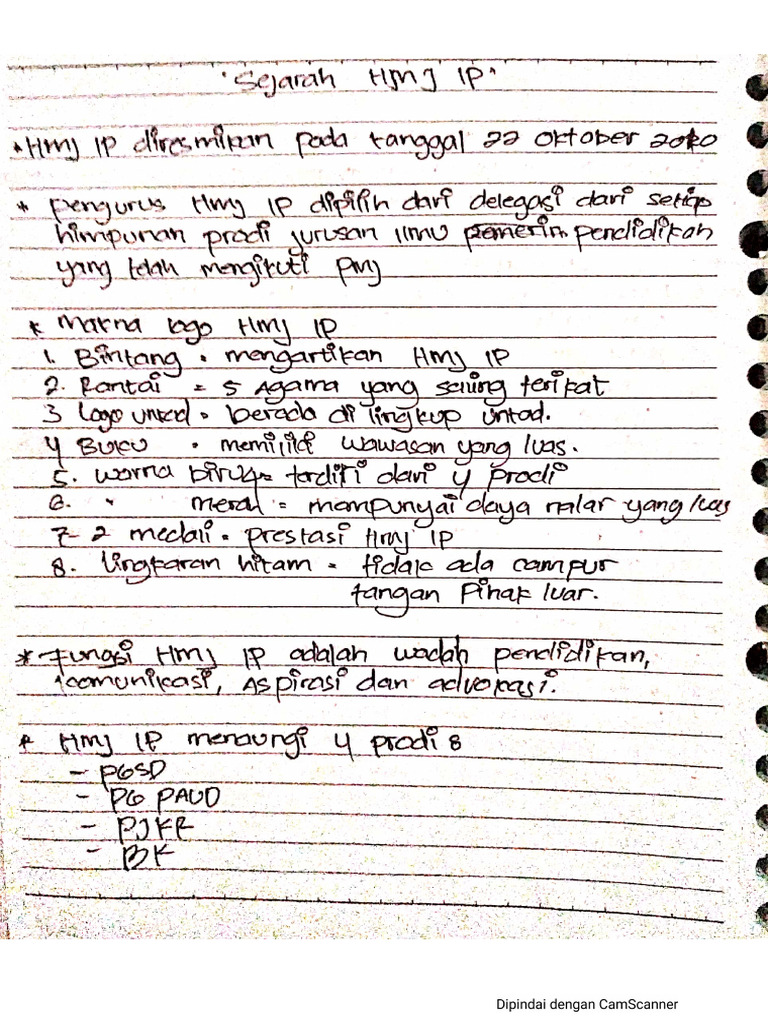 "Sejarah HMJ IP"
* HMJ IP diresmikan pada tanggal 22 Oktober 2020
* pengurus HMJ IP dipilih dari delegasi dari setiap
himpunan prodi jurusan Ilmu pemerin pendidikan
yang telah mengikuti PMJ
* Makna logo HMJ IP
1. Bintang = mengartikan HMJ IP
2. Rantai = 5 Agama yang saling terikat
3 Logo untad = berada di lingkup untad.
4 Buku = memiliki wawasan yang luas.
5. warna biru = terdiri dari 4 prodi
6. " merah = mempunyai daya nalar yang luas
7- 2 medali = prestasi HMJ IP
8. lingkaran hitam = tidak ada campur
tangan Pihak luar.
* Fungsi HMJ IP adalah wadah pendidikan,
komunikasi, Aspirasi dan advokasi.
* HMJ IP menaungi 4 prodi :
- PGSD
- PG PAUD
- PJKR
- BK
Dipindai dengan CamScanner